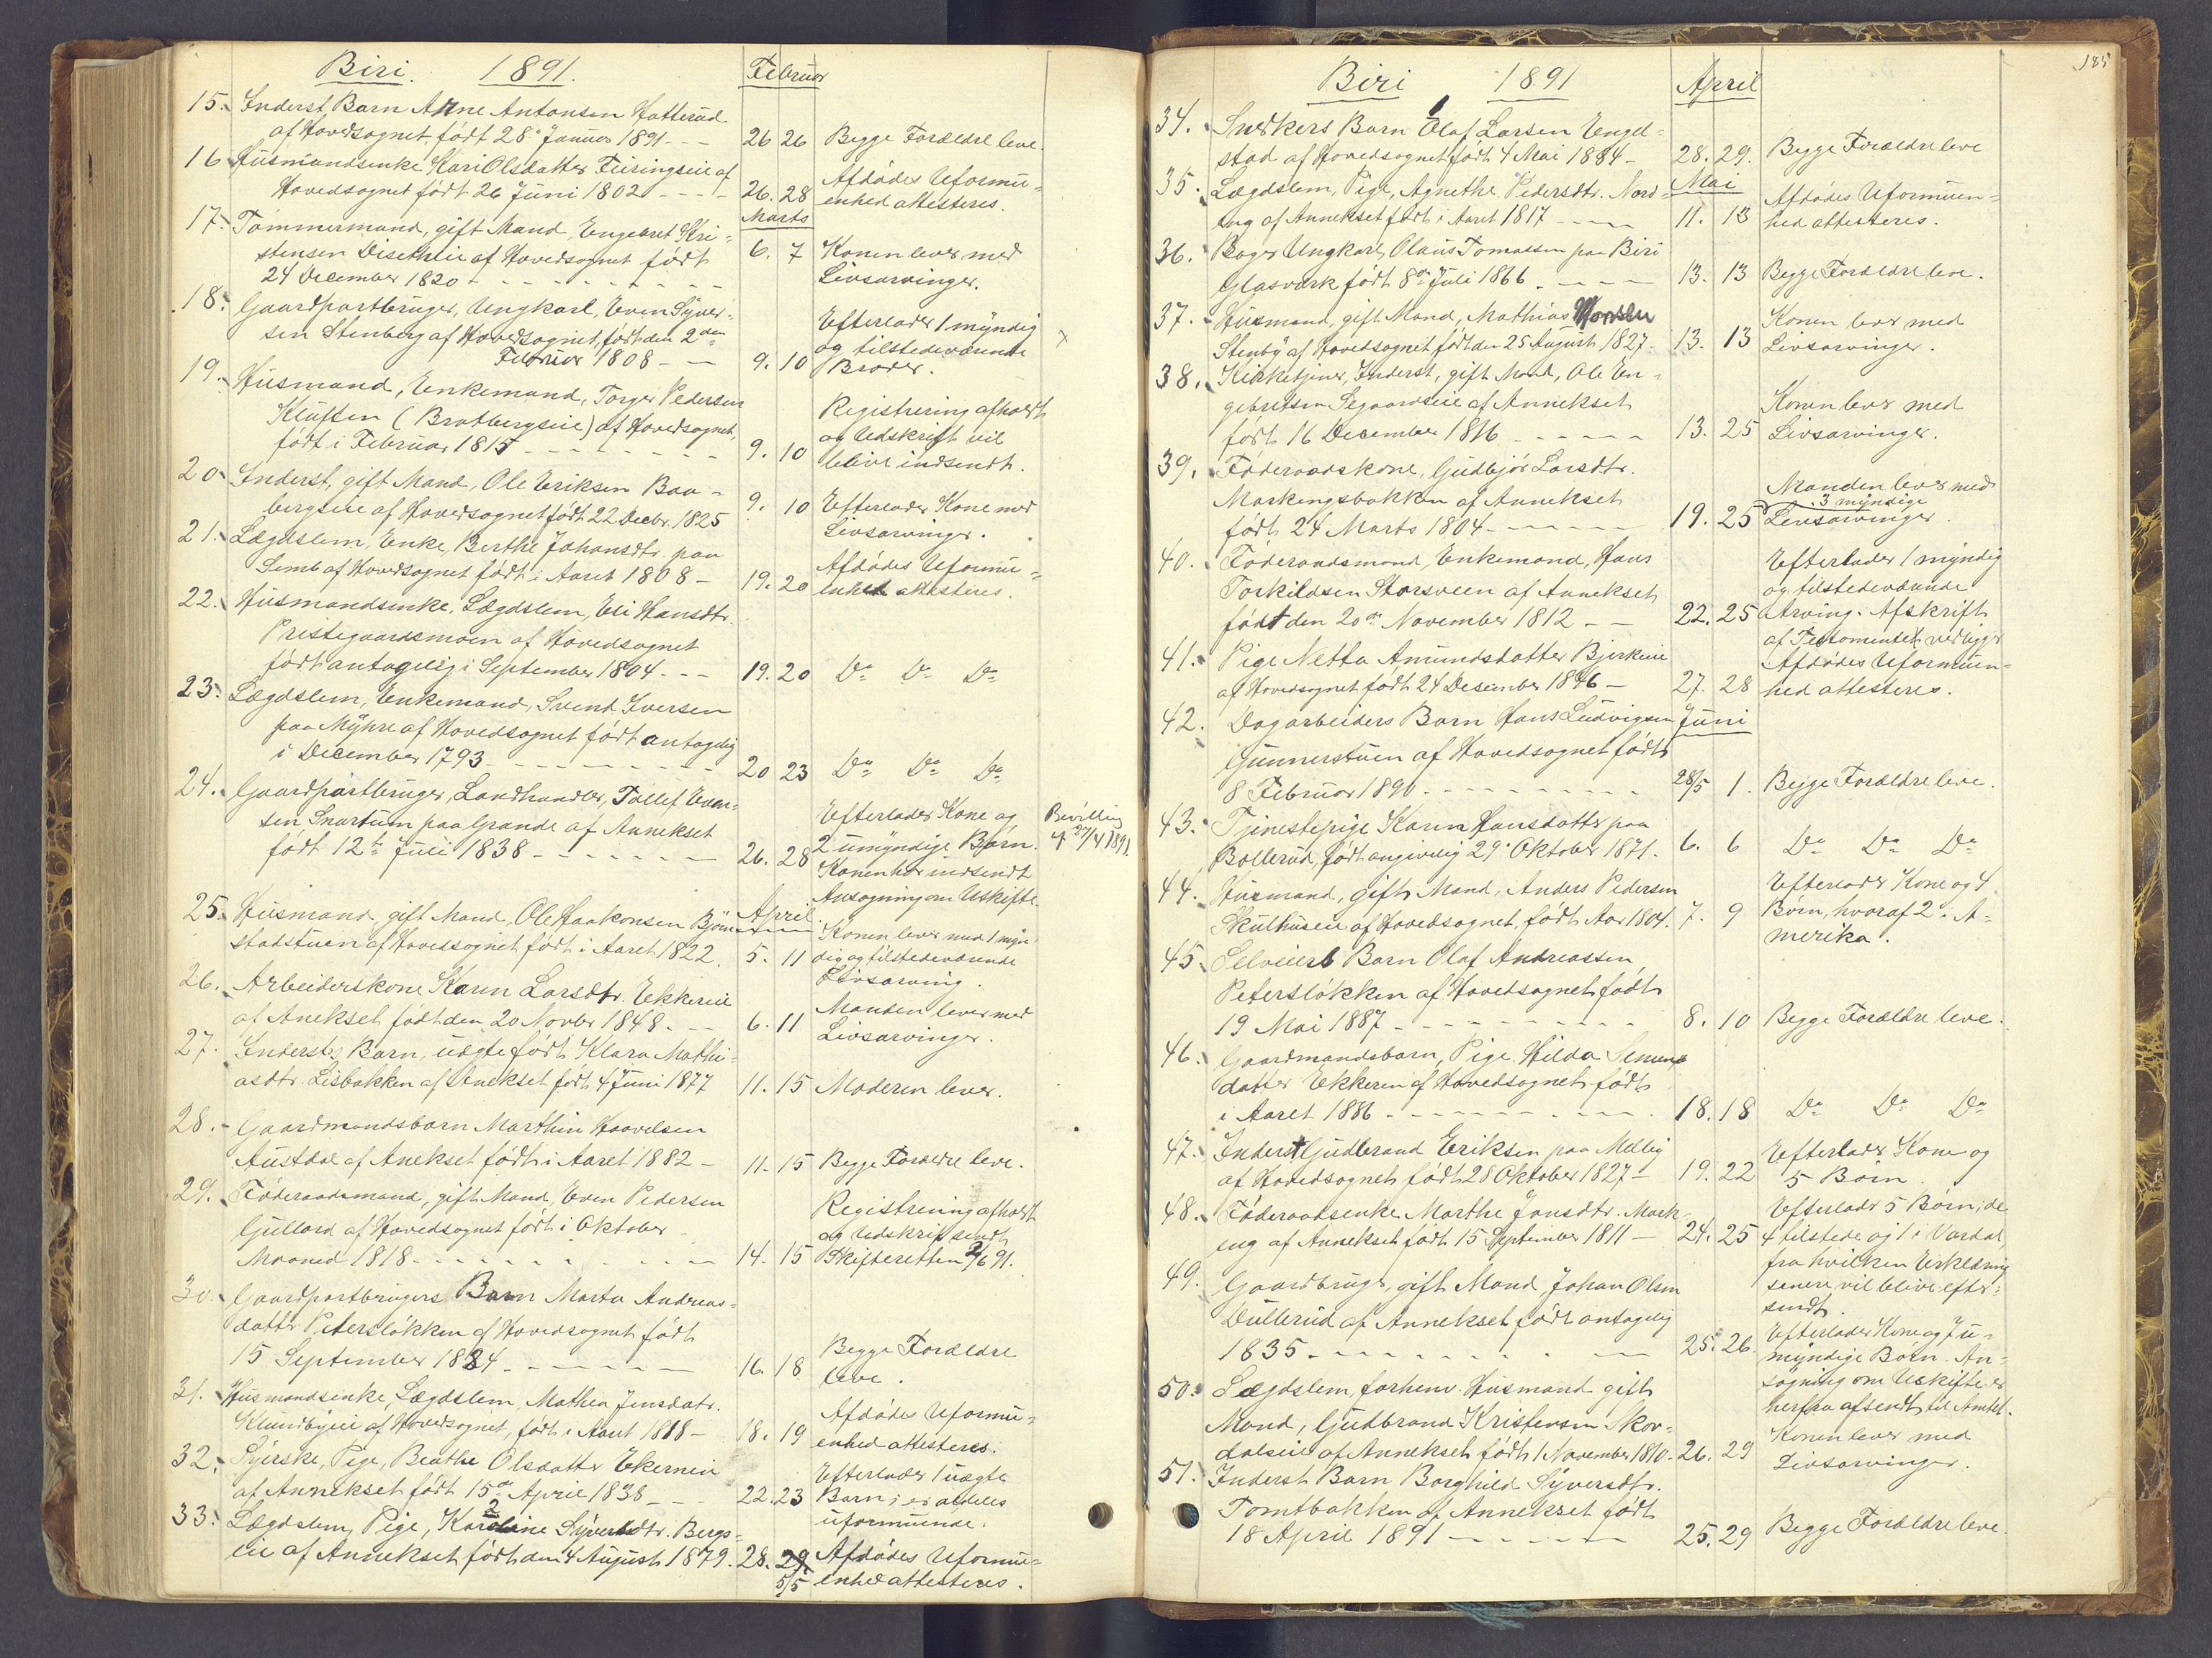 Biri. 1891. Februar
15. Inderst Barn Arne Antonsen Hatterud
af Hovedsognet født 28de Januar 1891 - - - 26 26 Begge Forældre leve.
16 Husmandsenke Kari Olsdatter Feiringseie af
Hovedsognet født 26 Juni 1802 - - - 26. 28 Afdødes Uformu-
enhed attesteres.
Marts
17. Tømmermand, gift Mand, Engebret Kri-
stensen Disetheie af Hovedsognet født 6. 7 Konen lever med
24 December 1820 - - - - - - Livsarvinger.
18. Gaardpartbruger, Ungkarl, Even Syver-
sen Stenberg af Hovedsognet, født den 2den Efterlader 1 myndig
Februar 1808 - - 9. 10 og tilstedeværende
Broder. x
19. Husmand, Enkemand, Torger Pedersen
Kluften (Bratbergseie) af Hovedsognet, Registrering afholdt
født i Februar 1815 - - - - - - 9. 10 og Udskrift vil
blive indsendt.
20. Inderst, gift Mand, Ole Eriksen Baa-
bergseie af Hovedsognet født 22 Decbr. 1825 9. 10 Efterlader Kone med
Livsarvinger.
21. Lægdslem, Enke, Berthe Johansdtr. paa
Semb af Hovedsognet født i Aaret 1808 - 19. 20 Afdødes Uformu-
enhed attesteres.
22. Husmandsenke, Lægdslem, Eli Hansdtr.
Prestegaardsmoen af Hovedsognet
født antagelig i September 1804 - - - 19. 20 Do Do Do
23. Lægdslem, Enkemand, Svend Iversen
paa Myhre af Hovedsognet født antagelig
i December 1793 - - - - - - 20 23 Do Do Do
24. Gaardpartbruger, Landhandler, Tollef Even-
sen Snartum paa Grande af Annekset Efterlader Kone og Bevilling
født 12te Juli 1838 - - - - - - 26. 28 2 umyndige Børn.
Konen har indsendt
Ansøgning om Uskifte.
25. Husmand, gift Mand, Ole Haakonsen Bjørn- April.
stadstuen af Hovedsognet født i Aaret 1822. 5. 11 Konen lever med 1 myn-
dig og tilstedeværende
Livsarving.
26. Arbeiderskone Karen Larsdtr. Ekkereie
af Anekset født den 20 Novbr 1848. - - 6. 11 Manden lever med
Livsarvinger.
27. Inderst, Barn, uægte født Klara Mathi-
asdtr. Lisbakken af Anekset født 4 Juni 1877 11. 15 Moderen lever.
28. Gaardmandsbarn Marthin Haavelsen
Austdal af Anekset født i Aaret 1882 - 11. 15 Begge Forældre leve.
29. Føderaadsmand, gift Mand, Even Pedersen
Gullord af Hovedsognet født i Oktober Registrering afholdt
Maaned 1818 - - - - - - 14. 15 og Udskrift sendt
Skifteretten 2/6 91.
30. Gaardpartbrugers Barn Marta Andreas-
datter Petersløkken af Hovedsognet født
15 September 1884 - - - - - - 16. 18 Begge Forældre
leve.
31. Husmandsenke, Lægdslem, Mathea Jensdatr.
Klundbyeie af Hovedsognet, født i Aaret 1818 - 18. 19 Afdødes Uformu-
enhed attesteres.
32. Syerske, Pige, Beathe Olsdatter Ekerneie
af Annekset født 15de April 1838 - - - 22. 23 Efterlader 1 uægte
Barn; er aldeles
uformuende.
33. Lægdslem, Pige, Karoline Syversdtr. Bergs-
eie af Annekset født den 4 August 1879. 28. 29 5/5 Afdødes Uformu-
enhed attesteres.
185
Biri 1891 April
34. Snedkers Barn Olaf Larsen Engel-
stad af Hovedsognet født 4 Mai 1884 - 28. 29. Begge Forældre leve
Mai
35. Lægdslem, Pige, Agnethe Pedersdtr. Nord-
eng af Annekset født i Aaret 1817 - - - 11. 13 Afdødes Uformuen-
hed attesteres.
36. Bager, Ungkarl, Olaus Tomassen paa Biri
Glasværk født 8de Juli 1866 - - - 13. 13 Begge Forældre leve.
37. Husmand, gift Mand, Mathias
Stenby af Hovedsognet født den 25 August 1827 - 13. 13 Konen lever med
Livsarvinger.
38. Kirketjener, Inderst, gift Mand, Ole En-
gebretsen Segaardseie af Annekset
født 16 December 1816 - - - - - 13. 25 Konen lever med
Livsarvinger.
39. Føderaadskone, Gudbjør Larsdtr.
Markengsbakken af Annekset Manden lever med
født 24 Marts 1804 - - - - - 19. 25 3 myndige
Livsarvinger.
40. Føderaadsmand, Enkemand, Hans
Torkildsen Storsveen af Annekset Efterlader 1 myndig
og tilstedeværende
født den 20de November 1812 - - 22. 25 Arving. Afskrift
af Testamentet vedligger
41. Pige Netta Amundsdatter Bjerkeeie
af Hovedsognet født 24 Desember 1846 - 27. 28 Afdødes Uformuen-
hed attesteres.
42. Dagarbeiders Barn Hans Ludvigsen Juni
Gunnerstuen af Hovedsognet født
8 Februar 1890 - - - - - - 28/5 1. Begge Forældre leve.
43. Tjenestepige Karen Hansdatter paa
Bollerud, født angivelig 29de Oktober 1871. 6. 6 Do Do Do
44. Husmand, gift Mand, Anders Pedersen
Skulhuseie af Hovedsognet, født Aar 1804. 7. 9 Efterlader Kone og 4
Børn, hvoraf 2 i A-
merika.
45. Selveiers Barn Olaf Andreassen
Petersløkken af Hovedsognet født
19 Mai 1887 - - - - - - 8. 10 Begge Forældre leve.
46. Gaardmandsbarn, Pige, Hilda
datter Ekkeren af Hovedsognet født
i Aaret 1886 - - - - - - 18. 18 Do Do Do
47. Inderst Gudbrand Eriksen paa Melby
af Hovedsognet født 28 Oktober 1827 - 19. 22 Efterlader Kone og
5 Børn.
48. Føderaadsenke Marthe Jonsdtr. Mark-
eng af Annekset født 15 September 1811 - 24. 25 Efterlader 5 Børn; de
4 tilstede og 1 i Vardal,
fra hvilken Erklæring
senere vil blive efter-
sendt.
49. Gaardbruger, gift Mand, Johan Olsen
Dullerud af Annekset født antagelig
1835 - - - - - - 25. 26 Efterlader Kone og 7 u-
myndige Børn. An-
søgning om Uskifte er
herfra afsendt til Amtet.
50. Lægdslem, forhenv. Husmand gift
Mand, Gudbrand Kristensen Skov-
dalseie af Annekset født 1 November 1810. 26. 29 Konen lever med
Livsarvinger.
51. Inderst Barn Borghild Syversdtr.
Tomtbakken af Annekset født
18 April 1891 - - - - - 25. 29 Begge Forældre leve.